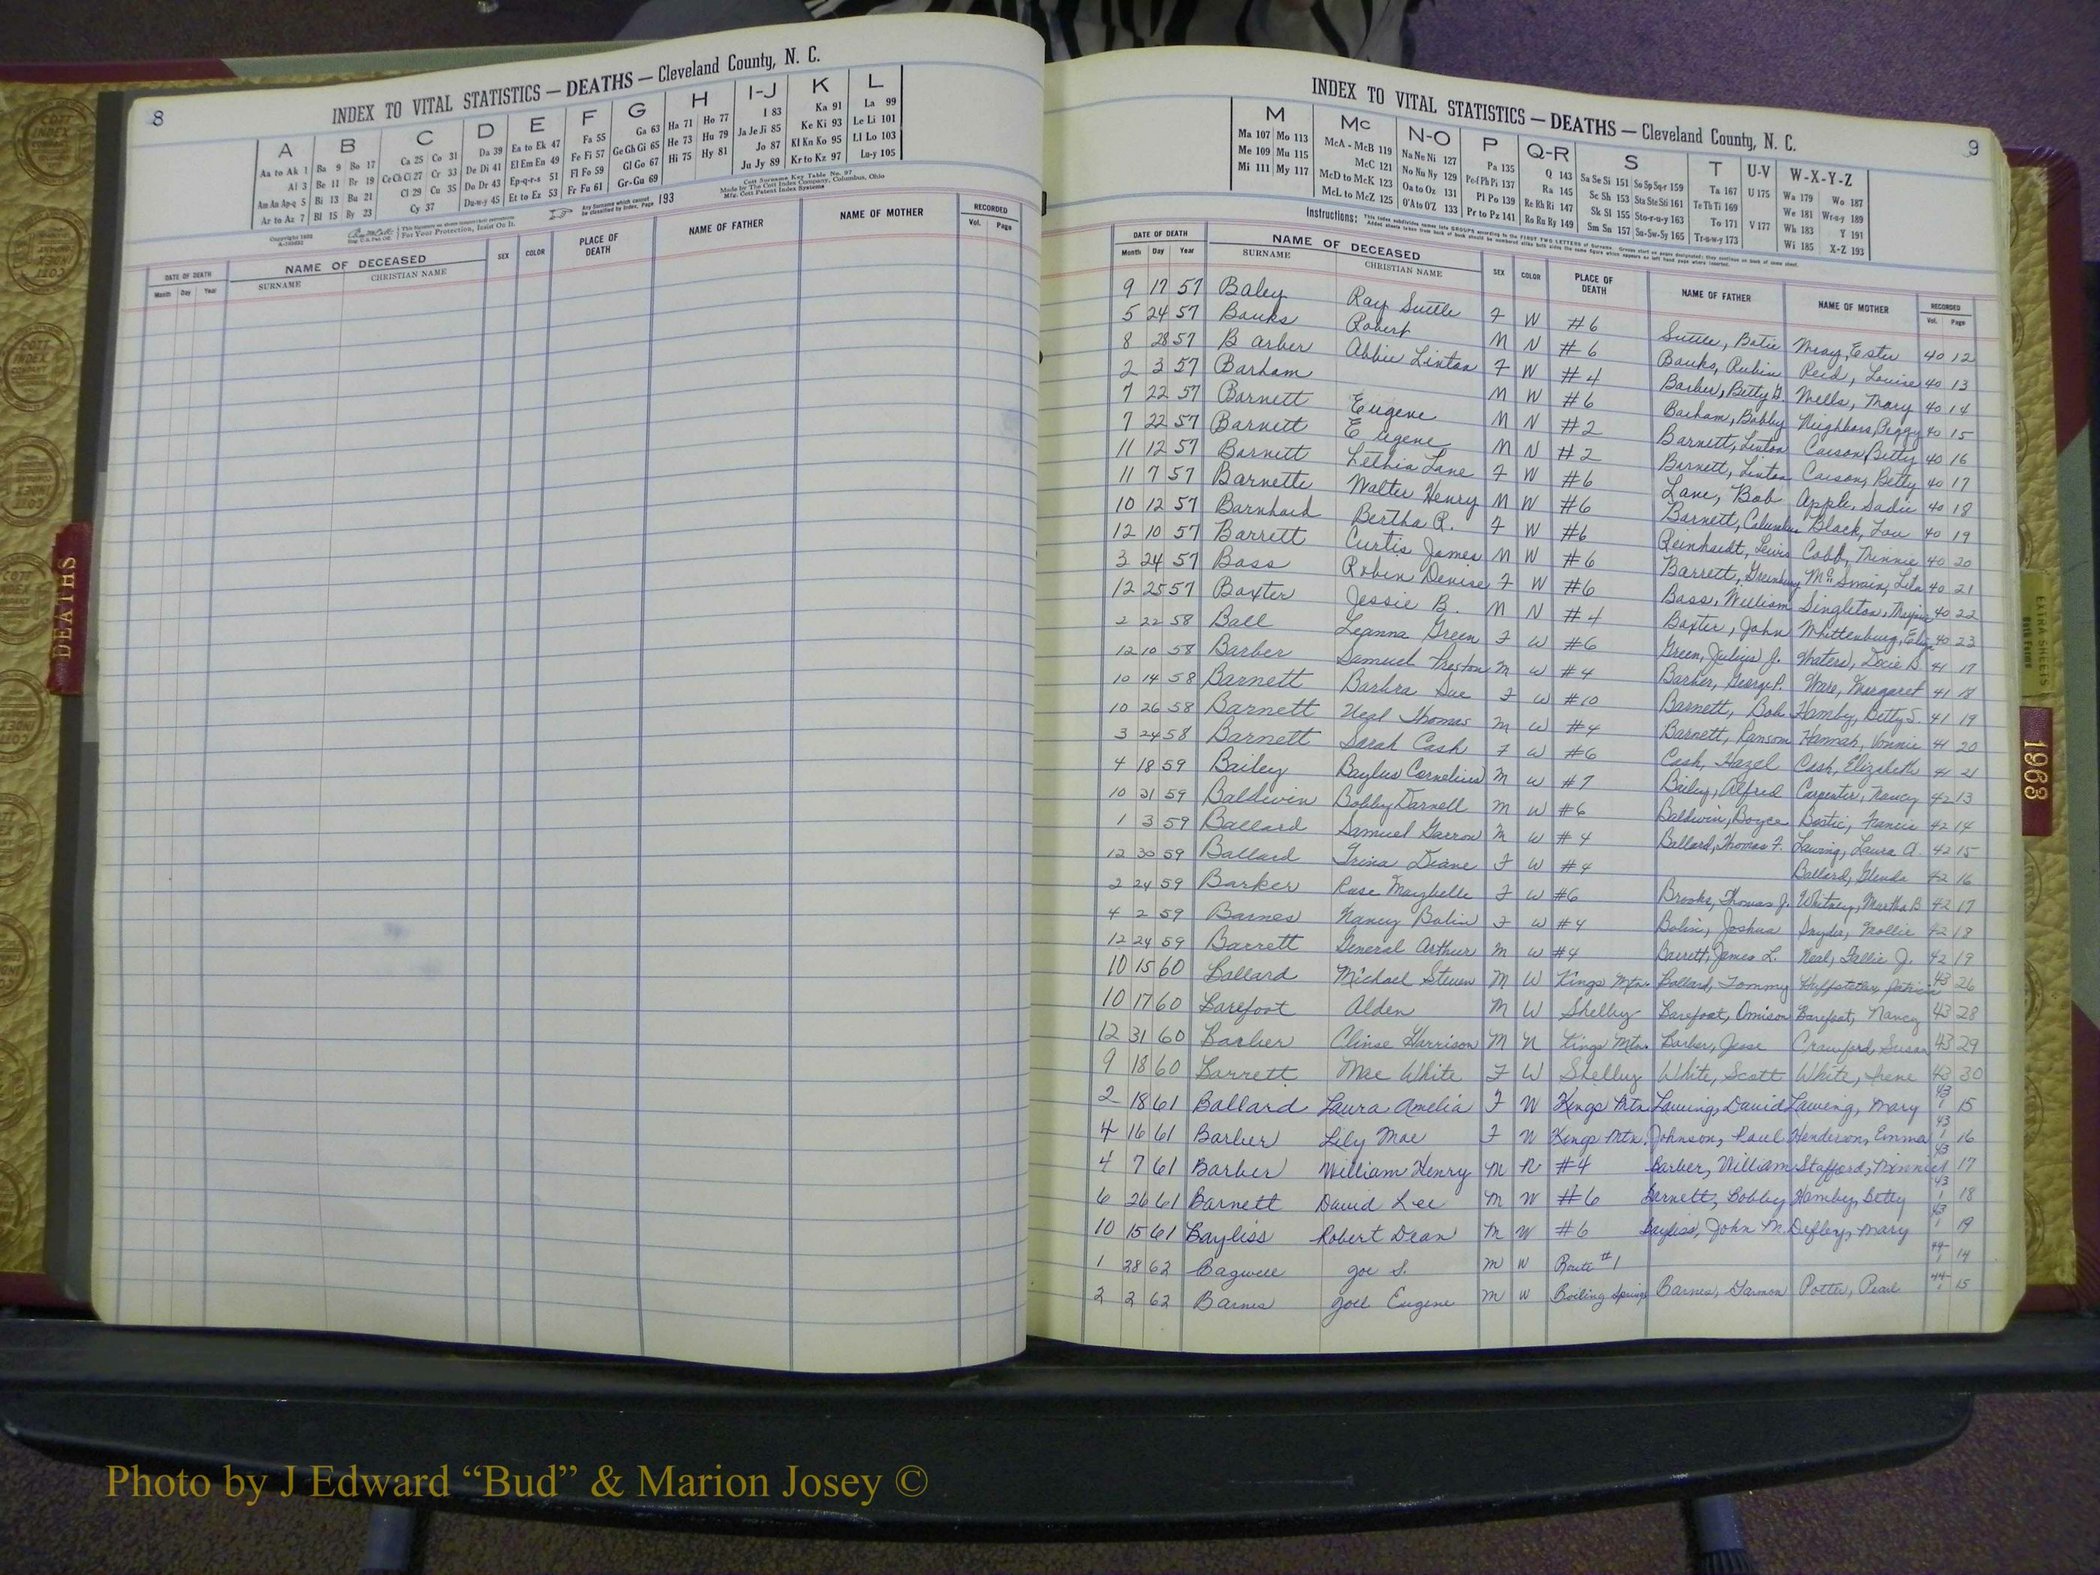 8
INDEX TO VITAL STATISTICS — DEATHS — Cleveland County, N. C.
A B C D E F G H I-J K L
Aa to Ak 1 Ba 9 Bo 17 Ca 25 Co 31 Da 39 Ea to Ek 47 Fa 55 Ga 63 Ha 71 Ho 77 I 83 Ka 91 La 99
Al 3 Be 11 Br 19 Ce Ch Ci 27 Cr 33 De Di 41 El Em En 49 Fe Fi 57 Ge Gh Gi 65 He 73 Hu 79 Ja Je Ji 85 Ke Ki 93 Le Li 101
Am An Ap-q 5 Bi 13 Bu 21 Cl 29 Cu 35 Do Dr 43 Ep-q-r-s 51 Fl Fo 59 Gl Go 67 Hi 75 Hy 81 Jo 87 Kl Kn Ko 95 Ll Lo 103
Ar to Az 7 Bl 15 By 23 Cy 37 Du-w-y 45 Et to Ez 53 Fr Fu 61 Gr-Gu 69 Ju Jy 89 Kr to Kz 97 Lu-y 105
Cott Surname Key Table No. 97
Made by The Cott Index Company, Columbus, Ohio
Mfg. Cott Patent Index Systems
For Your Protection, Insist On It.
Any Surname which cannot be classified by Index, Page 193
DATE OF DEATH NAME OF DECEASED SEX COLOR PLACE OF DEATH NAME OF FATHER NAME OF MOTHER RECORDED
Month Day Year SURNAME CHRISTIAN NAME Vol. Page
DEATHS
9
INDEX TO VITAL STATISTICS — DEATHS — Cleveland County, N. C.
M Mc N-O P Q-R S T U-V W-X-Y-Z
Ma 107 Mo 113 McA - McB 119 Na Ne Ni 127 Pa 135 Q 143 Sa Se Si 151 So Sp Sq-r 159 Ta 167 U 175 Wa 179 Wo 187
Me 109 Mu 115 McC 121 No Nu Ny 129 Pe-f Ph Pi 137 Ra 145 Sc Sh 153 Sta Ste Sti 161 Te Th Ti 169 We 181 Wr-u-y 189
Mi 111 My 117 McD to McK 123 Oa to Oz 131 Pl Po 139 Re Rh Ri 147 Sk Sl 155 Sto-r-u-y 163 To 171 V 177 Wh 183 Y 191
McL to McZ 125 O'A to O'Z 133 Pr to Pz 141 Ro Ru Ry 149 Sm Sn 157 Su-Sw-Sy 165 Tr-u-w-y 173 Wi 185 X-Z 193
Instructions:
DATE OF DEATH NAME OF DECEASED SEX COLOR PLACE OF DEATH NAME OF FATHER NAME OF MOTHER RECORDED
Month Day Year SURNAME CHRISTIAN NAME Vol. Page
9 17 57 Baley Ray Suttle F W #6 Suttle, Batie May, Ester 40 12
5 24 57 Banks Robert M N #6 Banks, Rubin Reid, Louise 40 13
8 28 57 Barber Abbie Linton F W #4 Barber, Betty G. Wells, Mary 40 14
2 3 57 Barham M W #6 Barham, Bobby Neighbors, Peggy 40 15
7 22 57 Barnett Eugene M N #2 Barnett, Linton Carson, Betty 40 16
7 22 57 Barnett Eugene M N #2 Barnett, Linton Carson, Betty 40 17
11 12 57 Barnett Lethia Lane F W #6 Lane, Bob Apple, Sadie 40 18
11 7 57 Barnette Walter Henry M W #6 Barnett, Columbus Black, Lou 40 19
10 12 57 Barnhard Bertha R. F W #6 Reinhardt, Lewis Cobb, Minnie 40 20
12 10 57 Barrett Curtis James M W #6 Barrett, Greenberry McSwain, Lila 40 21
3 24 57 Bass Robin Denise F W #6 Bass, William Singleton, 40 22
12 25 57 Baxter Jessie B. M N #4 Baxter, John Whittenburg, 40 23
2 22 58 Ball Leanna Green F W #6 Green, Julius J. Waters, Docie B. 41 17
12 10 58 Barber Samuel Preston M W #4 Barber, George P. Ware, Margaret 41 18
10 14 58 Barnett Barbra Sue F W #10 Barnett, Bob Hamby, Betty S. 41 19
10 26 58 Barnett Neal Thomas M W #4 Barnett, Ransom Hannah, Vonnie 41 20
3 24 58 Barnett Sarah Cash F W #6 Cash, Hazel Cash, Elizabeth 41 21
4 18 59 Bailey Baylus Cornelius M W #7 Bailey, Alfred Carpenter, Nancy 42 13
10 21 59 Baldwin Bobby Darnell M W #6 Baldwin, Boyce Bostic, Francis 42 14
1 3 59 Ballard Samuel Garron M W #4 Ballard, Thomas F. Lawing, Laura A. 42 15
12 30 59 Ballard Trina Diane F W #4 Ballard, Glenda 42 16
2 24 59 Barker Rose Maybelle F W #6 Brooks, Thomas J. Whitney, Martha B 42 17
4 2 59 Barnes Nancy Bolin F W #4 Bolin, Joshua Snyder, Mollie 42 18
12 24 59 Barrett General Arthur M W #4 Barrett, James L. Neal, Fallie J. 42 19
10 15 60 Ballard Michael Steven M W Kings Mtn. Ballard, Tommy Huffstetler, Patricia 43 26
10 17 60 Barefoot Alden M W Shelby Barefoot, Omison Barefoot, Nancy 43 28
12 31 60 Barber Clinse Harrison M N Kings Mtn. Barber, Jesse Crawford, Susan 43 29
9 18 60 Barrett Mae White F W Shelby White, Scott White, Irene 43 30
2 18 61 Ballard Laura Amelia F W Kings Mtn Lawing, David Lawing, Mary 43 1 15
4 16 61 Barber Lily Mae F N Kings Mtn. Johnson, Paul Henderson, Emma 43 1 16
4 7 61 Barber William Henry M N #4 Barber, William Stafford, Minnie 43 1 17
6 26 61 Barnett David Lee M W #6 Barnett, Bobby Hamby, Betty 43 1 18
10 15 61 Bayliss Robert Dean M W #6 Bayliss, John M. Mary 43 1 19
1 28 62 Bagwell Joe S. M W Route #1 44 1 14
2 2 62 Barnes Joel Eugene M W Boiling Springs Barnes, Potter, Pearl 44 1 15
EXTRA SHEETS
1963
Photo by J Edward “Bud” & Marion Josey ©